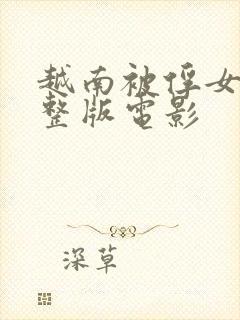 越南被俘女
整版電影
深草